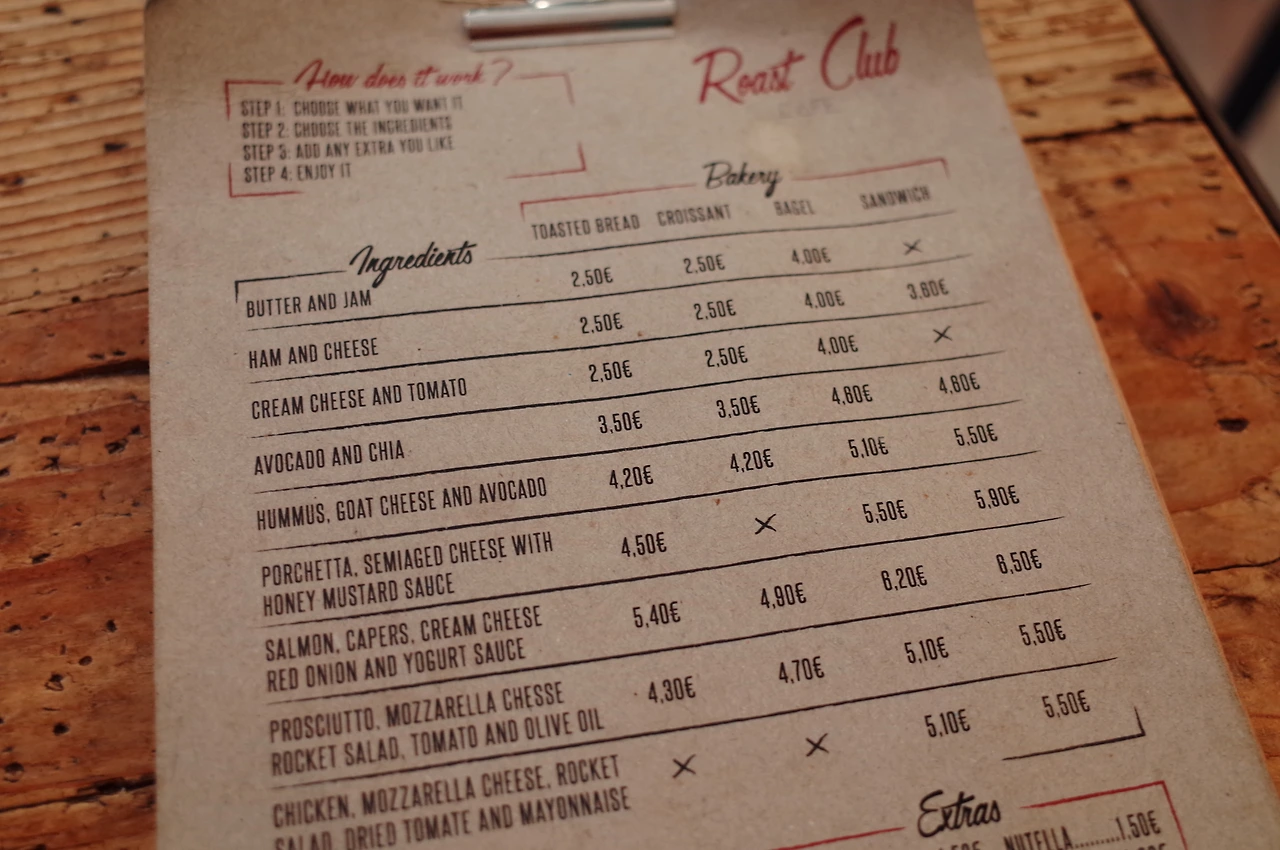 How does it work?
STEP 1: CHOOSE WHAT YOU WANT IT
STEP 2: CHOOSE THE INGREDIENTS
STEP 3: ADD ANY EXTRA YOU LIKE
STEP 4: ENJOY IT
Roast Club
CAFE
Bakery
TOASTED BREAD CROISSANT BAGEL SANDWICH
Ingredients
BUTTER AND JAM 2,50€ 2,50€ 4,00€ ×
HAM AND CHEESE 2,50€ 2,50€ 4,00€ 3,60€
CREAM CHEESE AND TOMATO 2,50€ 2,50€ 4,00€ ×
AVOCADO AND CHIA 3,50€ 3,50€ 4,60€ 4,60€
HUMMUS, GOAT CHEESE AND AVOCADO 4,20€ 4,20€ 5,10€ 5,50€
PORCHETTA, SEMIAGED CHEESE WITH 4,50€ × 5,50€ 5,90€
HONEY MUSTARD SAUCE
SALMON, CAPERS, CREAM CHEESE 5,40€ 4,90€ 6,20€ 6,50€
RED ONION AND YOGURT SAUCE
PROSCIUTTO, MOZZARELLA CHESSE 4,30€ 4,70€ 5,10€ 5,50€
ROCKET SALAD, TOMATO AND OLIVE OIL
CHICKEN, MOZZARELLA CHEESE, ROCKET × × 5,10€ 5,50€
SALAD, DRIED TOMATE AND MAYONNAISE
Extras
NUTELLA.........1,50€